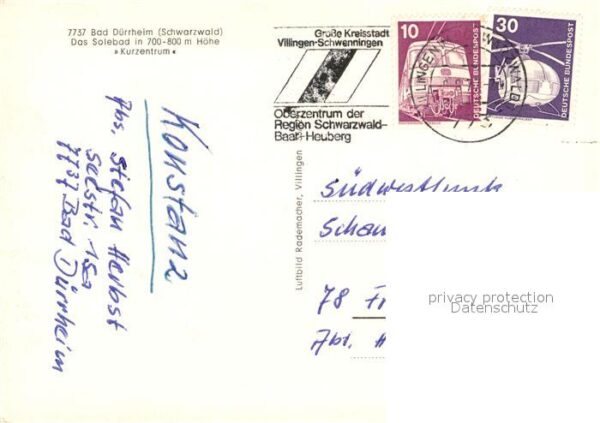 7737 Bad Dürrheim (Schwarzwald)
Das Solebad in 700-800 m Höhe
» Kurzentrum «
Große Kreisstadt
Villingen-Schwenningen
Oberzentrum der
Region Schwarzwald-
Baar-Heuberg
10
DEUTSCHE BUNDESPOST
30
DEUTSCHE BUNDESPOST
Luftbild Rademacher, Villingen
Konstanz
Abs. Stefan Herbst
Seestr.
7737 Bad Dürrheim
Südwestfunk
78
Abt.
privacy protection
Datenschutz